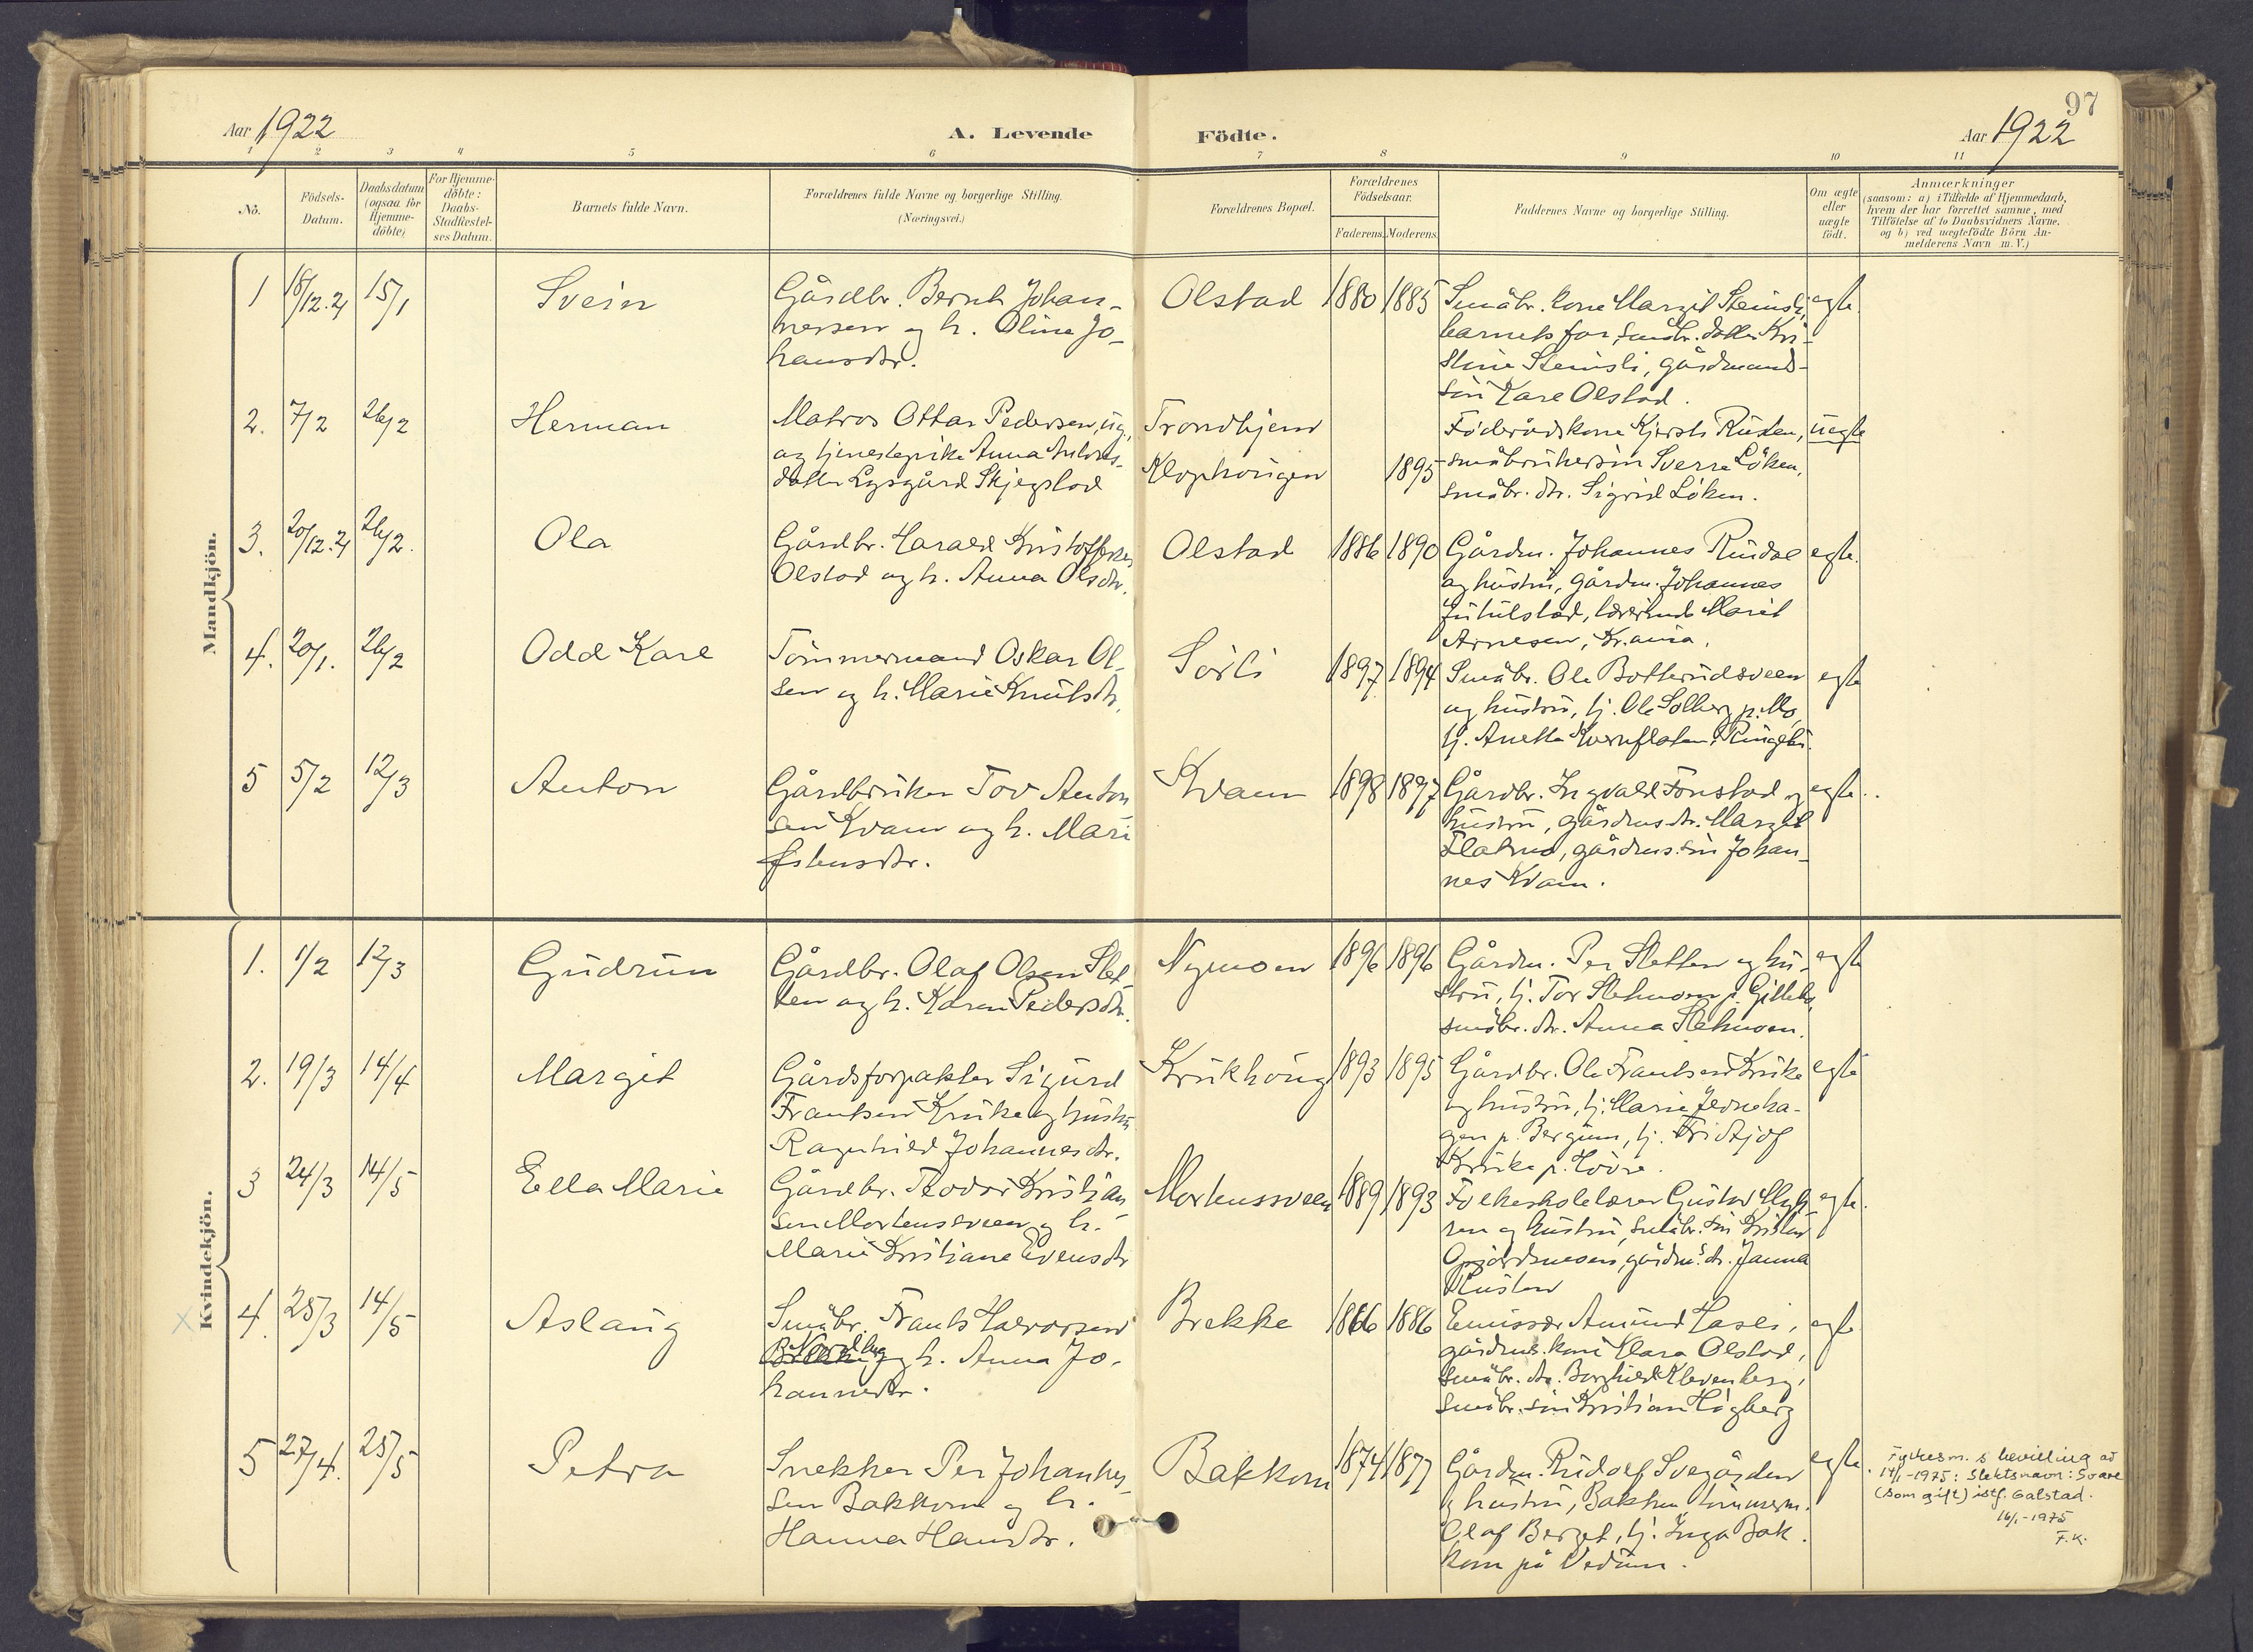 97
Aar 1922
A. Levende Födte.
Aar 1922
1 2 3 4 5 6 7 8 9 10 11
No.
Födsels-
Datum.
Daabsdatum
(ogsaa for
Hjemme-
döbte)
For Hjemme-
döbte:
Daabs-
Stadfæstel-
ses Datum.
Barnets fulde Navn.
Forældrenes fulde Navne og borgerlige Stilling.
(Næringsvei.)
Forældrenes Bopæl.
Forældrenes
Födselsaar.
Faderens. Moderens.
Faddernes Navne og borgerlige Stilling.
Om ægte
eller
uægte
födt.
Anmærkninger
(saasom: a) i Tilfælde af Hjemmedaab,
hvem der har forrettet samme, med
Tilföielse af to Daabsvidners Navne.
og b) ved uægtefödte Börn An-
melderens Navn m. V.)
Mandkjön.
1 18/12.21 15/1 Svein
Gårdbr. Bernt Johan-
nessen og h. Oline Jo-
hansdtr.
Olstad 1880 1885
Småbr. kone Margit Steinsli,
barnets far, småbr. datter Kri-
stine Steinsli, gårdmands-
sön Kare Olstad.
egte
2. 7/2 26/2 Herman
Matros Ottar Pedersen, ug.
og tjenestepike Anna Antons-
datter Lysgård Skjegstad
Trondhjem
Klophougen 1895
Föderådskone Kjersti Rusten,
småbrukersön Sverre Löken,
småbr. dtr. Sigrid Löken.
uegte
3. 20/12.21 26/2. Ola
Gårdbr. Harald Kristoffersen
Olstad og h. Anna Olsdtr.
Olstad 1886 1890
Gårdm. Johannes Rindal
og hustru, gårdm. Johannes
Jutulstad, lærerinde Marit
Arnesen, Kr.ania.
egte.
4. 20/1. 26/2 Odd Karl
Tömmermand Oskar Ol-
sen og h. Marie Knutsdtr.
Sörli 1897 1894
Småbr. Ole Botterudsveen
og hustru, tj. Ole Solberg p. Mo,
tj. Anette Kvernflaten, Ringebu.
egte
5 5/2 12/3 Anton
Gårdbruker Tov Anton
sen Kvam og h. Mari
Estensdtr.
Kvam 1898 1897
Gårdbr. Ingvald Fonstad og
hustru, gårdms dtr. Margit
Flatmo, gårdms. sön Johan-
nes Kvam.
egte.
Kvindekjön.
1. 1/2 12/3 Gudrun
Gårdbr. Olaf Olsen Slet-
ten og h. Karen Pedersdtr.
Nymoen 1896 1896
Gårdm. Per Sletten og hu-
stru, tj. Tor Sletmoen p. Gillebo,
småbr. dtr. Anna Sletmoen.
egte
2. 19/3 14/4 Margit
Gårdsforpakter Sigurd
Frantsen Kruke og hustru
Ragnhild Johannesdtr.
Krukhoug 1893 1895
Gårdbr. Ole Frantsen Kruke
og hustru, tj. Marie Jevneha-
gen p. Bergum, tj. Fridtjof
Kruke p. Hovre.
egte
3 24/3 14/5 Ella Marie
Gårdbr. Teodor Kristian
sen Mortenssveen og h.
Marie Kristiane Evensdtr
Mortenssveen 1889 1893
Folkeskolelærer Gustav Myh-
ren og hustru, småbr. sön Kristian
gårdm.s dtr. Janna
Rusten
egte.
4. 25/3 14/5 Aslaug
Småbr. Frants Halvorsen
Nordhug
og h. Anna Jo-
hannesdtr.
Brekke 1866 1886
Emissær Amund Hasli,
gårdmk. kone Klara Olstad,
småbr. dtr. Borghild Klevenberg,
småbr. sön Kristian Högberg
egte
5 27/4. 25/5 Petra
Snekker Per Johannes-
sen Bakkom og h.
Hanna Hansdtr.
Bakkom 1874 1877
Gårdm. Rudolf Svegården
og hustru, Bakken tömmerm.
Olaf Berget, tj. Inga Bak-
kom på Vedum.
egte.
Fylkesm. s bevilling av
14/1-1975: Slektsnavn: Svare
(som gift) istf. Galstad.
16/1-1975
F.K.